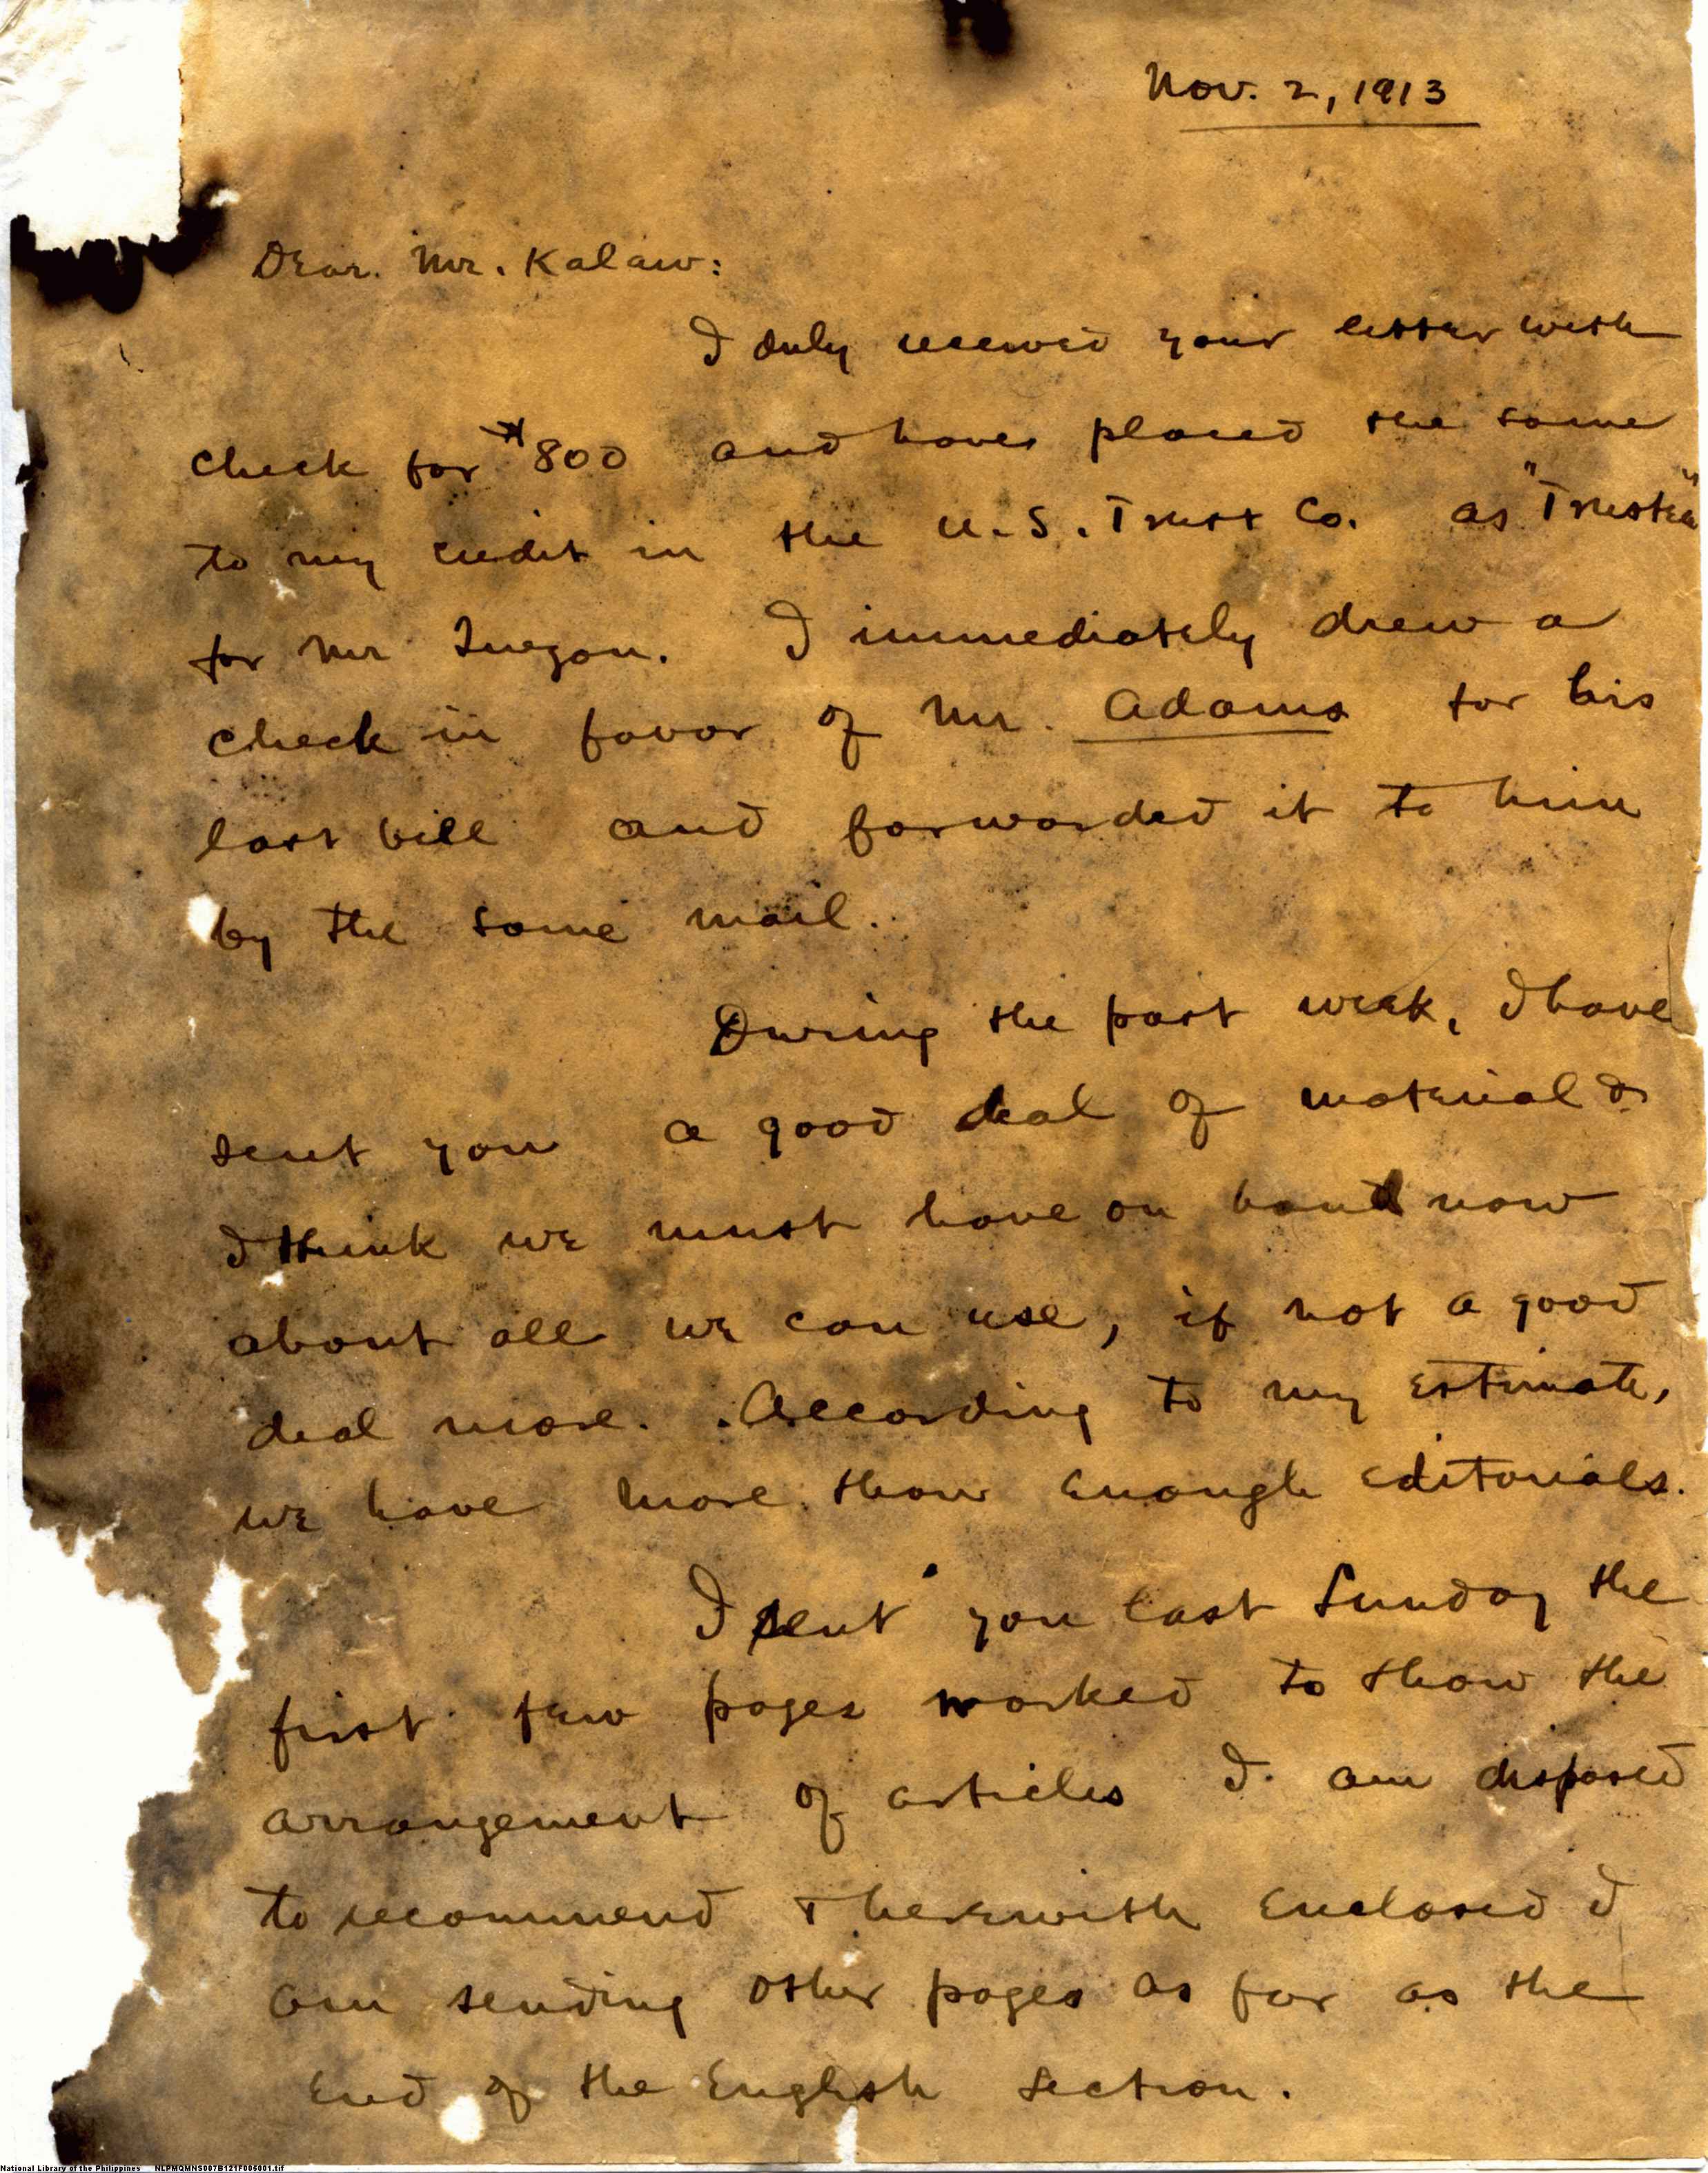 Nov. 2, 1913
Dear. Mr. Kalaw:
I duly received your letter with
check for $800 and have placed the same
to my credit in the U.S. Trust Co. as "Trustee"
for Mr Quezon. I immediately drew a
check in favor of Mr. Adams for his
last bill and forwarded it to him
by the same mail.
During the past week, I have
sent you a good deal of material &
I think we must have on hand now
about all we can use, if not a good
deal more. According to my estimate,
we have more than enough editorials.
I sent you last Sunday the
first few pages marked to show the
arrangement of articles I am disposed
to recommend & herewith enclosed I
am sending other pages as far as the
end of the English section.
National Library of the Philippines NLPMQMNS007B121F005001.tif